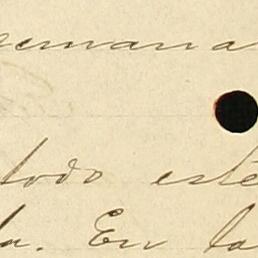 semana
todo esté
la. En la